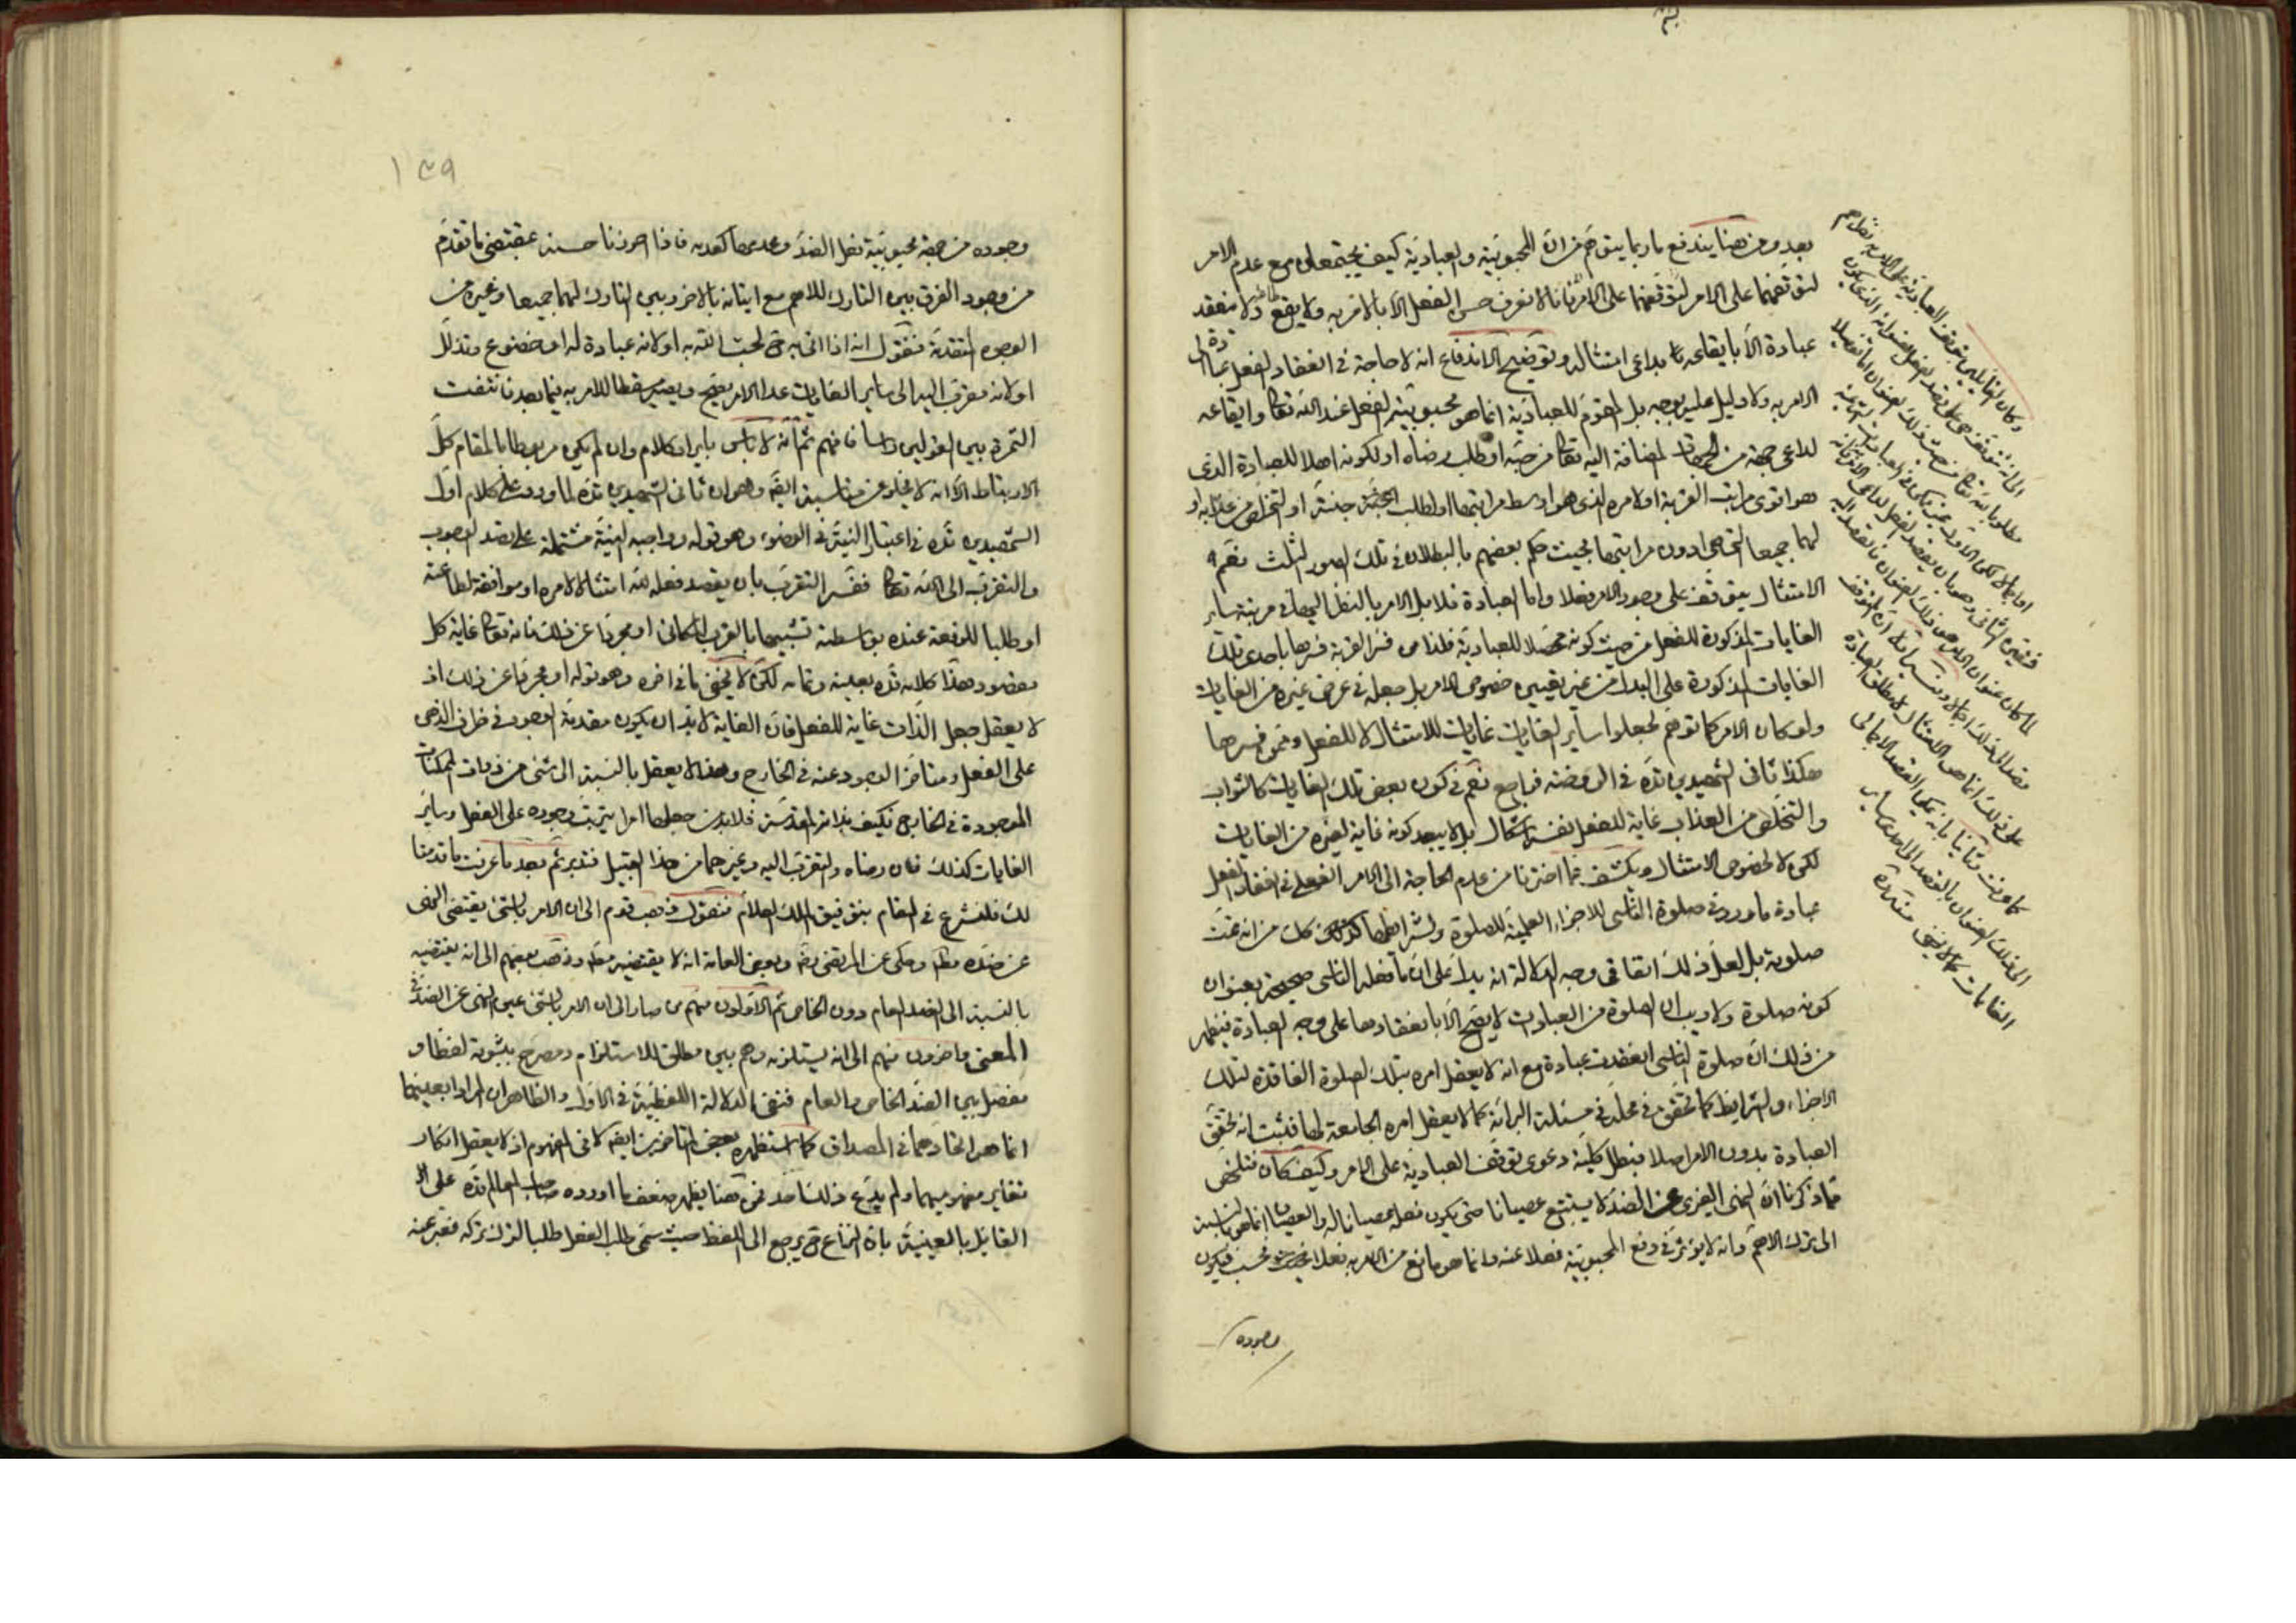 بعد ومن هنا يندفع ما ربما يتوهم من ان المحبوبية والعبادية كيف يجتمعان مع عدم الامر
لتوقفهما على الامر لتوقفهما على الامر فانا لا نعرف حسن الفعل الا بالامر به ولا يقع ولا منعقد
عبادة الا بايقاعه بداعى امتثاله وتوضيح الاندفاع انه لا حاجة فى انعقاد الفعل عبادة الى
الامر به ولا دليل عليه بوجه بل المقوم للعبادية انما هو محبوبية الفعل عند الله تعالى وايقاعه
لداعى جهة من الجهات المضافة اليه تعالى من حبه او طلب رضاه او لكونه اهلا للعبادة الذى
هو اقوى مراتب القربة او لامره الذى هو اوسط مراتبها او لطلب جنته او التخلص من عذابه او
لهما جميعا التى هى ادون مراتبها بحيث حكم بعضهم بالبطلان فى تلك الصور الثلث نعم
الامتثال يتوقف على وجود الامر فعلا واما العبادة فلا بل الامر بالنظر اليها فى مرتبة ساير
الغايات المذكورة للفعل من حيث كونه محصلا للعبادية فلذا من فسر القربة فسرها باحدى تلك
الغايات المذكورة على البدل من غير تعيين خصوص الامر بل جعله فى عرض غيره من الغايات
ولو كان الامر كما توهم لجعلوا ساير الغايات غايات للامتثال لا للفعل وممن فسرها
هكذا ثانى الشهيدين قده فى الروضة فراجع نعم فى كون بعض تلك الغايات كالثواب
والتخلص من العذاب غاية للفعل نفسه اشكال بل لا يبعد كونه غاية لغيره من الغايات
لكن لا لخصوص الامتثال ويكشف عما اخترنا من عدم الحاجة الى الامر الفعلى فى انعقاد الفعل
عبادة ما ورد فى صلوة الناسى للاجزاء العلمية للصلوة ولشرائطها كذلك من انه تمت
صلوته بل لعل ذلك اتفاقى وجه الدلالة انه يدل على ان ما فعله الناسى صحيحة بعنوان
كونه صلوة ولا ريب ان الصلوة من العبادات لا يصح الا بانعقادها على وجه العبادة فيظهر
من ذلك ان صلوة الناسى انعقدت عبادة مع انه لا يعقل امره بتلك الصلوة الفاقدة لتلك
الاجزاء والشرايط كما تحقق فى محله فى مسئلة البرائة كما لا يعقل امره الجامعة لها فثبت انه تحقق
العبادة بدون الامر اصلا فبطل كلية دعوى توقف العبادية على الامر وكيف كان فتلخص
مما ذكرنا ان النهى الغيرى عن الضد لا يستتبع عصيانا حتى يكون فعله عصيانا له والعصيان انما هو بالنسبة
الى ترك الاهم وانه لا يؤثر فى دفع المحبوبية فضلا عنه وانما هو مانع من الامر به فعلا فحسب فيكون
وجوده
وكان القائلين بتوقف العبادية على الامر به نظرهم
الى انه يتوقف على قصد الفعل بعنوانه الذى يكون
مطلوبا لله تعالى من حيث ذلك العنوان اما تفصيلا
او اجمالا
قصد الى ذلك اجمالا
على ذلك انما هى الامتثال لا مطلق العبادة
كما عرفت وثانيا بانه يمكن القصد الاجمالى
الى ذلك العنوان بالقصد الى احدى ساير
الغايات كما لا يخفى منه قده
١٤٩
وجوده من جهة محبوبية فعل الضد وعدمها كعدمه فاذا احرزنا حسنه بمقتضى ما تقدم
من وجود الفرق بين التارك للاهم مع اتيانه بالاخر وبين التارك لهما جميعا وغيره من
الوجوه المتقدمة فنقول انه اذا اتى به ح لحب الله به او لانه عبادة له او خضوع وتذلل
او لانه مقرب اليه الى ساير الغايات عدا الامر يصح ويصير مسقطا للامر به فيما بعد فانتفت
الثمرة بين القولين راسا فافهم ثم انه لا باس بايراد كلام وان لم يكن مربوطا بالمقام كل
الارتباط الا انه لا يخلو عن مناسبة ايضا وهو ان ثانى الشهيدين قده لما ورد على كلام اول
الشهيدين قده فى اعتبار النية فى الوضوء وهو قوله وواجبه النية مشتملة على قصد الوجوب
والتقرب الى الله تعالى ففسر التقرب بان يقصد فعله لله امتثالا لامره او موافقة لطاعته
او طلبا للرفعة عنده بواسطة تشبيها بالقرب المكانى او مجردا عن ذلك فانه تعالى غاية كل
مقصود وهذا كلامه قده بعينه وتمامه لكن لا يخفى ما فى اخره وهو قوله او مجردا عن ذلك اذ
لا يعقل جعل الذات غاية للفعل فان الغاية لا بد ان يكون مقدمة الوجود فى ظرف الذهن
على الفعل ومتاخر الوجود عنه فى الخارج وهذا لا يعقل بالنسبة الى شئ من ذوات الممكنات
الموجودة فى الخارج فكيف بذاته المقدسة فلا بد من جعلها امرا يترتب وجوده على الفعل وساير
الغايات كذلك فان رضاه والتقرب اليه وغيرهما من هذا القبيل فتدبر ثم بعد ما عرفت ما قدمنا
لك فلنشرع فى المقام بتوفيق الملك العلام فنقول ذهب قوم الى ان الامر بالشئ يقتضى النهى
عن ضده مطلقا وحكى عن المرتضى ره وبعض العامة انه لا يقتضيه مطلقا وذهب بعضهم الى انه يقتضيه
بالنسبة الى الضد العام دون الخاص ثم الاولون منهم من صار الى ان الامر بالشئ عين النهى عن الضد فى
المعنى واخرون منهم الى انه يستلزمه وهم بين مطلق للاستلزام ومصرح بثبوته لفظا و
مفصل بين الضد الخاص والعام فنفى الدلالة اللفظية فى الاول والظاهر ان المراد بعينهما
انما هو اتحادهما فى المصداق كما استظهره بعض المتاخرين ايضا لا فى المفهوم اذ لا يعقل انكار
تغاير مفهوميهما ولم يدع ذلك احد فمن هنا يظهر ضعف ما اورده صاحب المعالم قده على
القائل بالعينية بان النزاع ح يرجع الى اللفظ حيث سمى طلب الفعل طلبا لترك تركه فعبر عنه